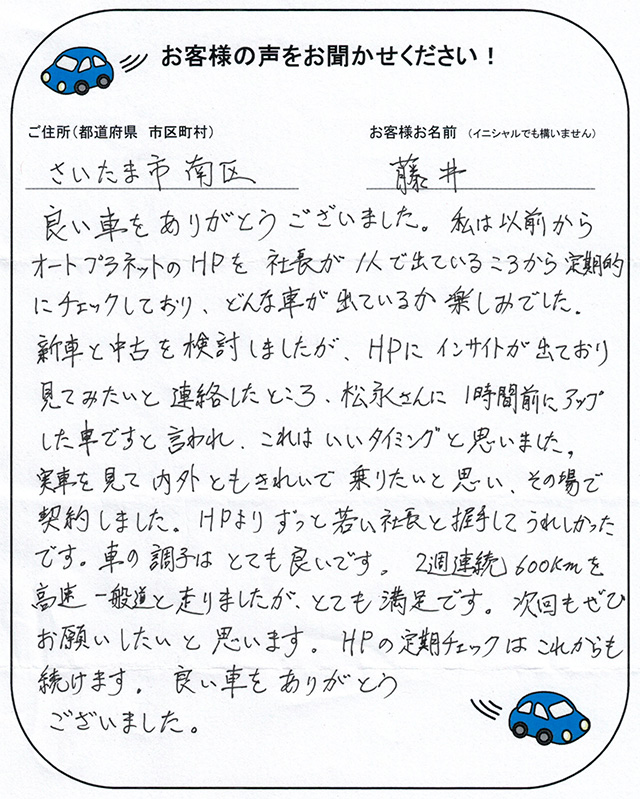 お客様の声をお聞かせください！
ご住所（都道府県　市区町村）
お客様お名前　（イニシャルでも構いません）
さいたま市 南区
藤井
良い車をありがとうございました。私は以前から
オートプラネットのHPを 社長が 1人で出ているころから定期的
にチェックしており、どんな車が出ているか楽しみでした。
新車と中古を検討しましたが、HPに インサイトが出ており
見てみたいと連絡したところ、松永さんに 1時間前にアップ
した車ですと言われ、これは いいタイミングと思いました。
実車を見て 内外ともきれいで 乗りたいと思い、その場で
契約しました。HPより ずっと若い社長と握手して うれしかった
です。車の調子は とても良いです。2週連続 600kmを
高速 一般道と走りましたが、とても満足です。次回もぜひ
お願いしたいと思います。HPの定期チェックは これからも
続けます。良い車を ありがとう
ございました。